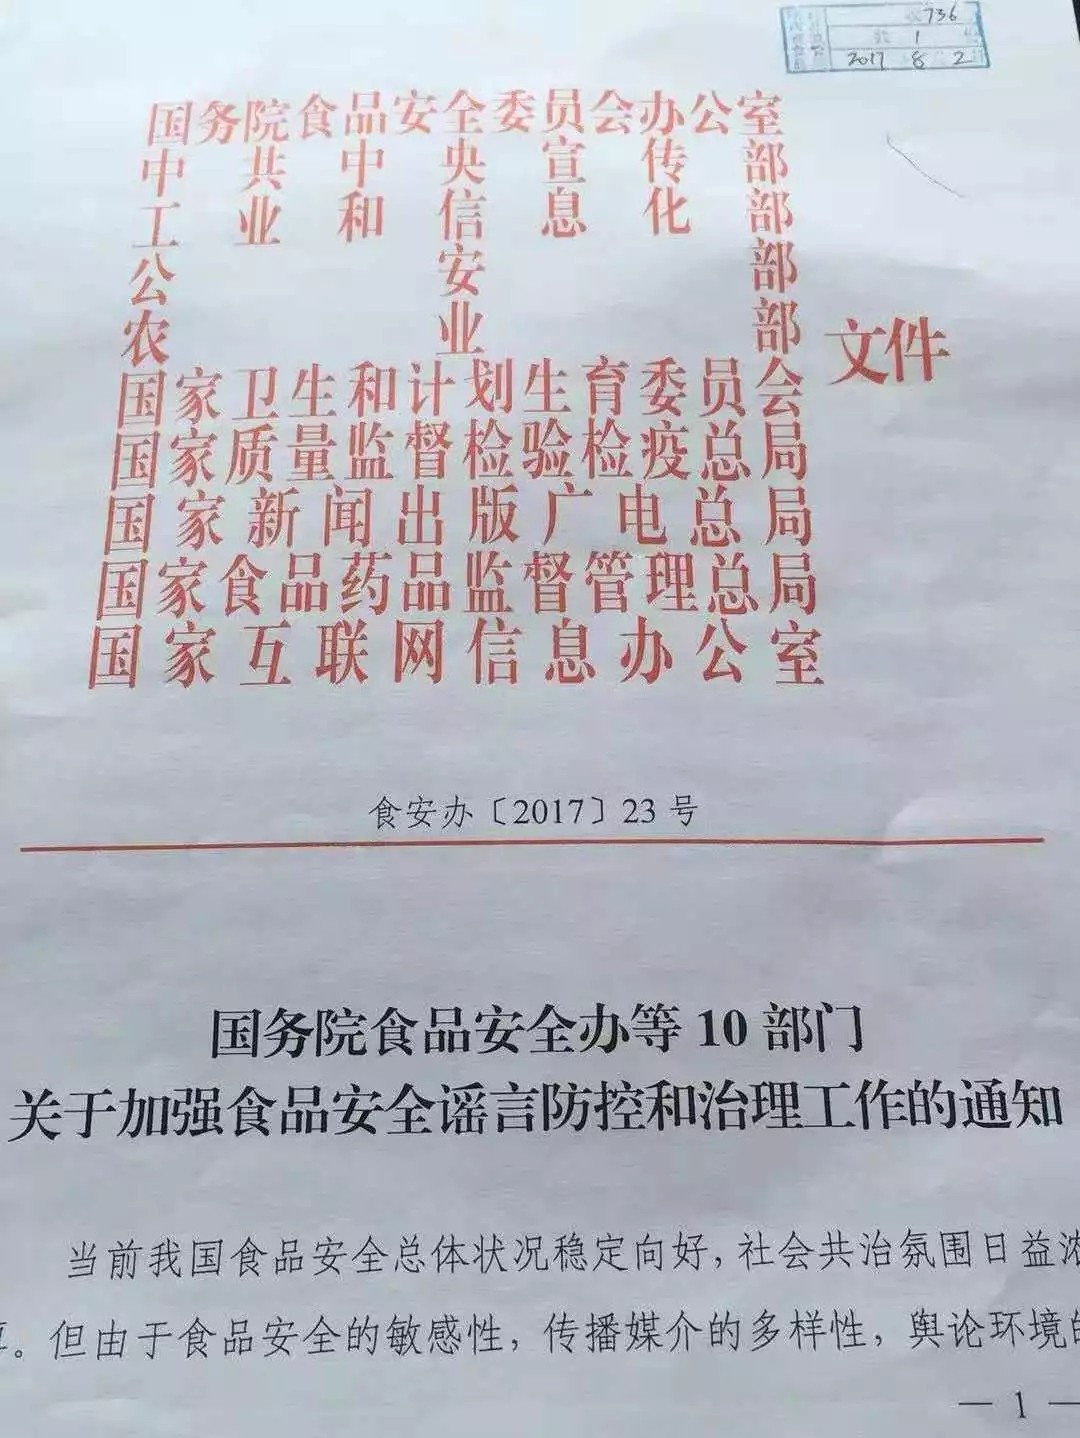 736
1
2017 8 2
国务院食品安全委员会办公室
中共中央宣传部
工业和信息化部
公安部
农业部
国家卫生和计划生育委员会
国家质量监督检验检疫总局
国家新闻出版广电总局
国家食品药品监督管理总局
国家互联网信息办公室
文件
食安办〔2017〕23号
国务院食品安全办等10部门
关于加强食品安全谣言防控和治理工作的通知
当前我国食品安全总体状况稳定向好，社会共治氛围日益浓
。但由于食品安全的敏感性，传播媒介的多样性，舆论环境的
— 1 —